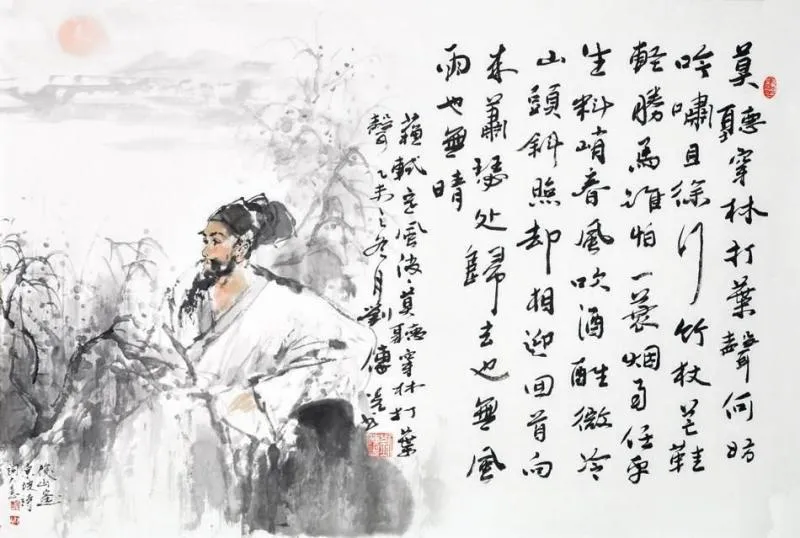 莫聽穿林打葉聲何妨
吟嘯且徐行竹杖芒鞋
輕勝馬誰怕一蓑烟雨任平
生料峭春風吹酒醒微冷
山頭斜照却相迎回首向
来蕭瑟处歸去也無風
雨也無晴
蘇軾定風波莫聽穿林打葉
聲乙未之冬月劉傳
俊山畫
東坡詩